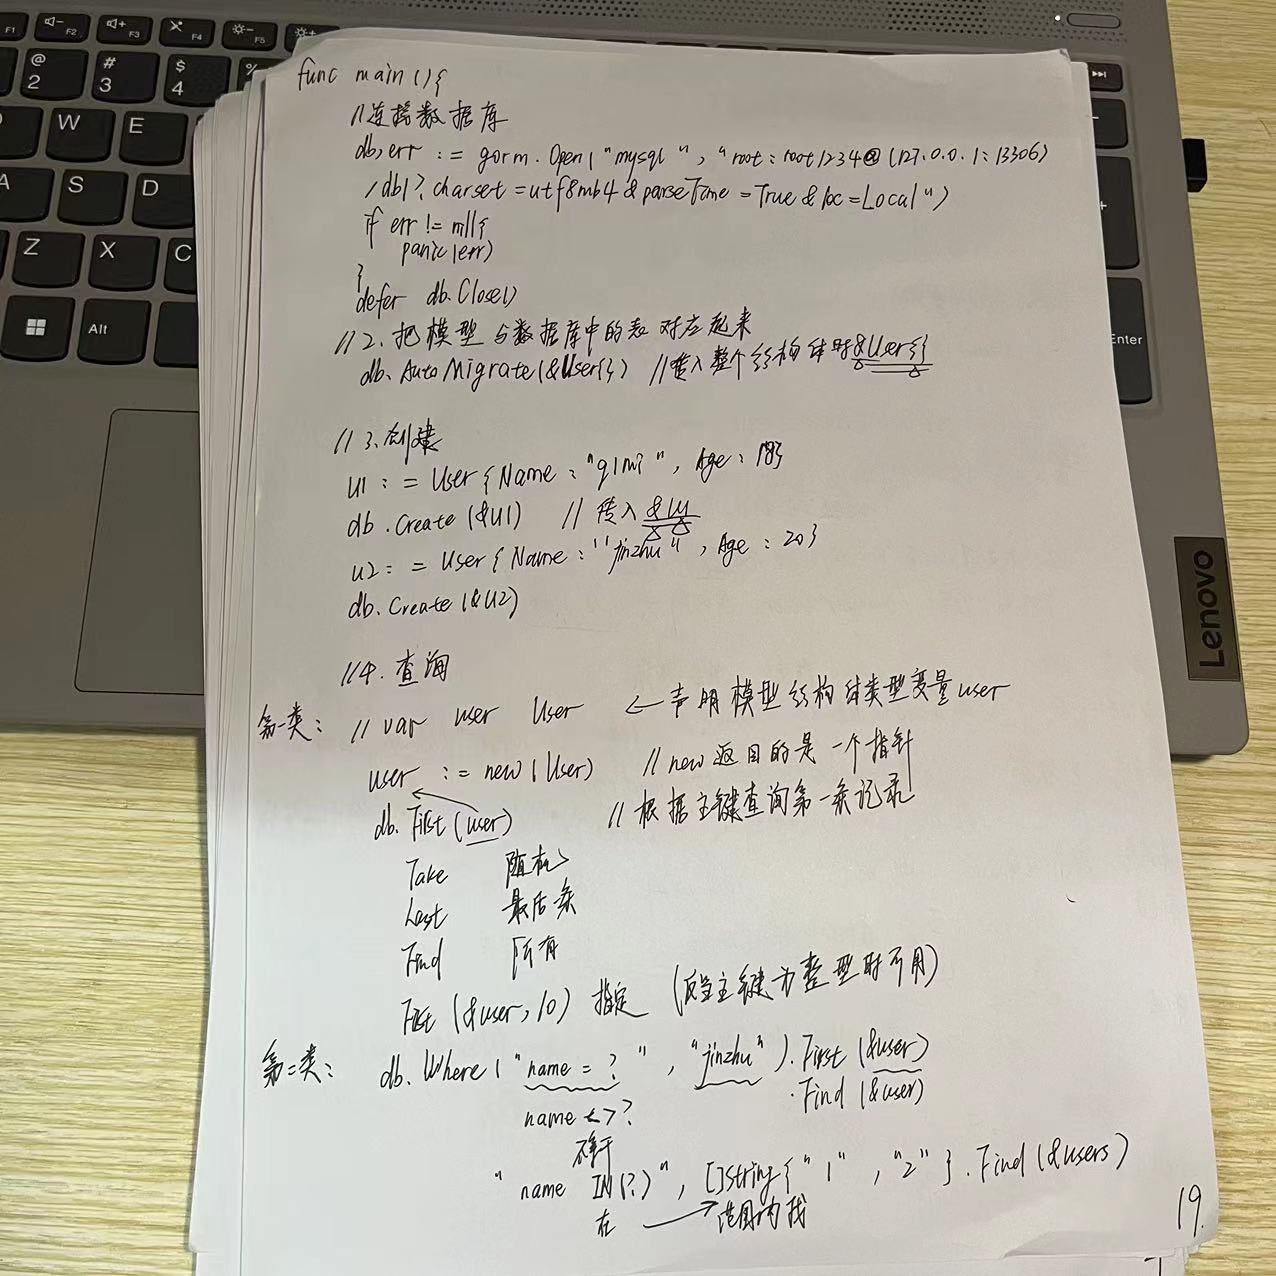 func main(){
//连接数据库
db,err := gorm.Open("mysql", "root:root1234@(127.0.0.1:13306)
/db1?charset=utf8mb4&parseTime=True&loc=Local")
if err != nil{
panic(err)
}
defer db.Close()
//2.把模型与数据库中的表对应起来
db.AutoMigrate(&User{}) //传入整个结构体时&User{}
//3.创建
u1:=User{Name:"qimi", Age:18}
db.Create(&u1) //传入&u1
u2:=User{Name:"jinzhu", Age:20}
db.Create(&u2)
//4.查询
第一类: //var user User ←声明模型结构体类型变量user
user := new(User) //new返回的是一个指针
db.First(user) //根据主键查询第一条记录
Take 随机
Last 最后条
Find 所有
First (&user,10) 指定 (仅当主键为整型时可用)
第二类: db.Where("name = ?", "jinzhu").First(&user)
.Find(&user)
name <>?
不等于
"name IN(?)", []string{"1","2"}.Find(&users)
在 → 范围内找
19.
F1 F2 F3 F4 F5
@ 2 # 3 $ 4 %
W E
A S D
Z X C
Alt
Enter
Lenovo